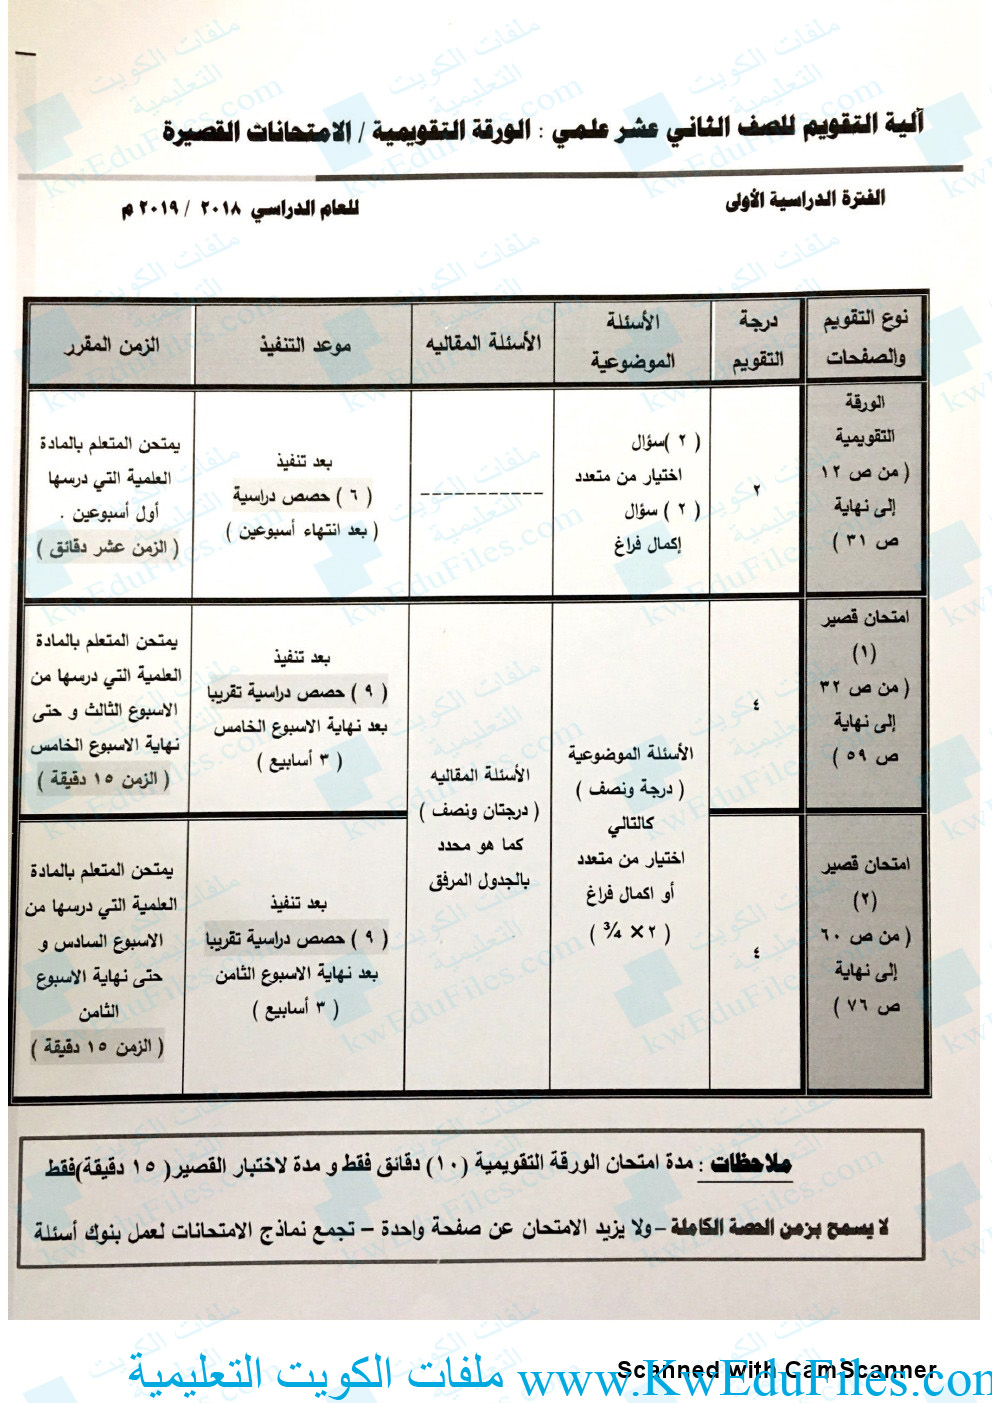 آلية التقويم للصف الثاني عشر علمي : الورقة التقويمية / الامتحانات القصيرة
الفترة الدراسية الأولى
للعام الدراسي ٢٠١٨ / ٢٠١٩ م
نوع التقويم
والصفحات
درجة
التقويم
الأسئلة
الموضوعية
الأسئلة المقاليه
موعد التنفيذ
الزمن المقرر
الورقة
التقويمية
( من ص ١٢
إلى نهاية
ص ٣١ )
٢
( ٢ )سؤال
اختيار من متعدد
( ٢ ) سؤال
إكمال فراغ
------------
بعد تنفيذ
( ٦ ) حصص دراسية
( بعد انتهاء أسبوعين )
يمتحن المتعلم بالمادة
العلمية التي درسها
أول أسبوعين .
( الزمن عشر دقائق )
امتحان قصير
(١)
( من ص ٣٢
إلى نهاية
ص ٥٩ )
٤
الأسئلة الموضوعية
( درجة ونصف )
كالتالي
اختيار من متعدد
أو اكمال فراغ
( ٢ × ¾ )
الأسئلة المقاليه
( درجتان ونصف )
كما هو محدد
بالجدول المرفق
بعد تنفيذ
( ٩ ) حصص دراسية تقريبا
بعد نهاية الاسبوع الخامس
( ٣ أسابيع )
يمتحن المتعلم بالمادة
العلمية التي درسها من
الاسبوع الثالث و حتى
نهاية الاسبوع الخامس
( الزمن ١٥ دقيقة )
امتحان قصير
(٢)
( من ص ٦٠
إلى نهاية
ص ٧٦ )
٤
بعد تنفيذ
( ٩ ) حصص دراسية تقريبا
بعد نهاية الاسبوع الثامن
( ٣ أسابيع )
يمتحن المتعلم بالمادة
العلمية التي درسها من
الاسبوع السادس و
حتى نهاية الاسبوع
الثامن
( الزمن ١٥ دقيقة )
ملاحظات : مدة امتحان الورقة التقويمية (١٠) دقائق فقط و مدة لاختبار القصير( ١٥ دقيقة)فقط
لا يسمح بزمن الحصة الكاملة – ولا يزيد الامتحان عن صفحة واحدة – تجمع نماذج الامتحانات لعمل بنوك أسئلة
Scanned with CamScanner
www.KwEduFiles.com ملفات الكويت التعليمية